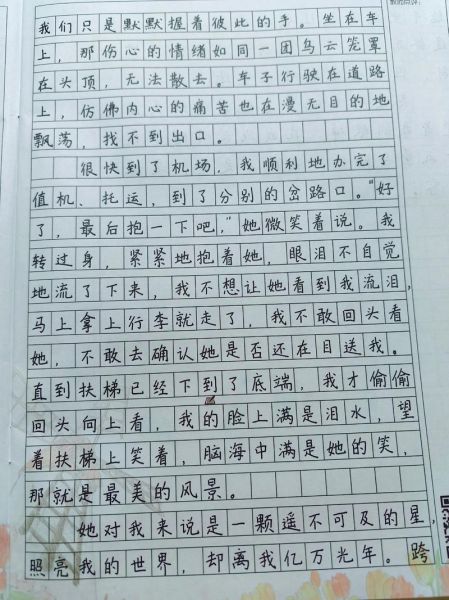 我们只是默默握着彼此的手。坐在车
上，那伤心的情绪如同一团乌云笼罩
在头顶，无法散去。车子行驶在道路
上，仿佛内心的痛苦也在漫无目的地
飘荡，找不到出口。
很快到了机场，我顺利地办完了
值机、托运，到了分别的岔路口。“好
了，最后抱一下吧，”她微笑着说。我
转过身，紧紧地抱着她，眼泪不自觉
地流了下来，我不想让她看到我流泪，
马上拿上行李就走了，我不敢回头看
她，不敢去确认她是否还在目送我。
直到扶梯已经下到了底端，我才偷偷
回头向上看，我的脸上满是泪水，望
着扶梯上笑着，脑海中满是她的笑，
那就是最美的风景。
她对我来说是一颗遥不可及的星，
照亮我的世界，却离我亿万光年。跨